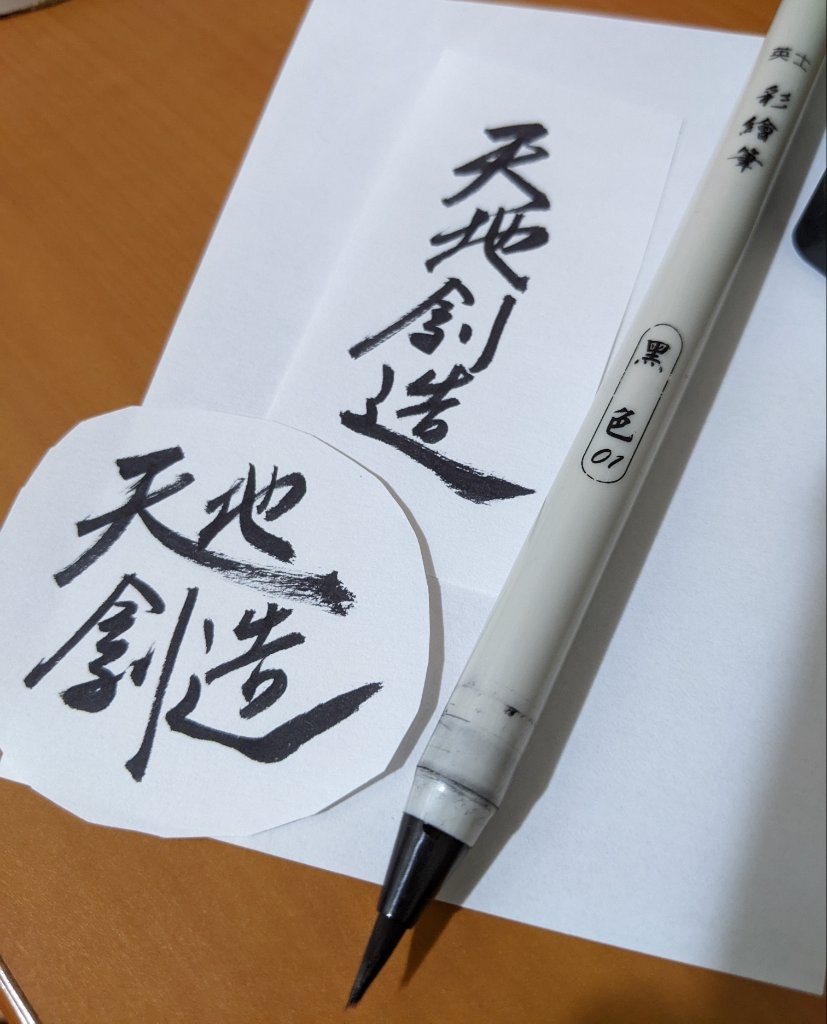 天地創造
天地
創造
英士 彩繪筆
黑色
01